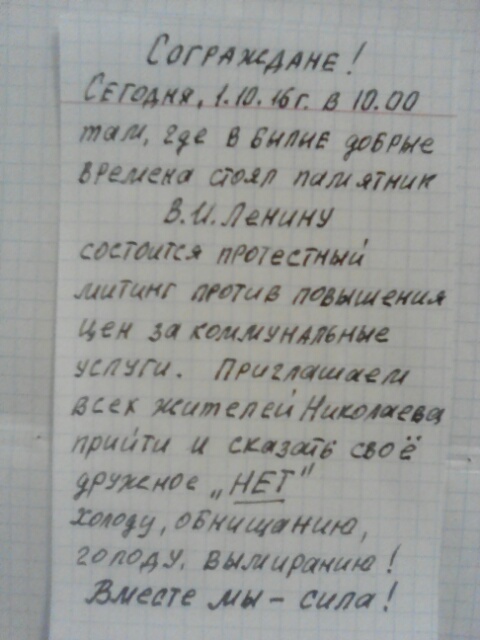 Сограждане!
Сегодня, 1.10.16г. в 10.00
там, где в былие добрые
времена стоял памятник
В.И.Ленину
состоится протестный
митинг против повышения
цен за коммунальные
услуги. Приглашаем
всех жителей Николаева
прийти и сказать своё
дружное „НЕТ"
холоду, обнищанию,
голоду, вымиранию!
Вместе мы - сила!